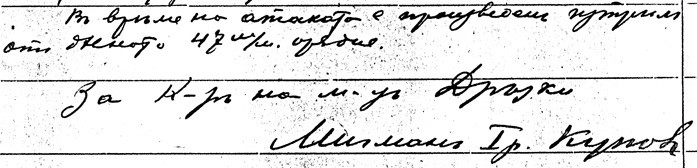 Въ време на атаката е произведенъ изтрелъ
отъ дясното 47 м/м. оръдие.
За К-ръ на м-цъ Дръзки
Мичманъ I р. Куповъ